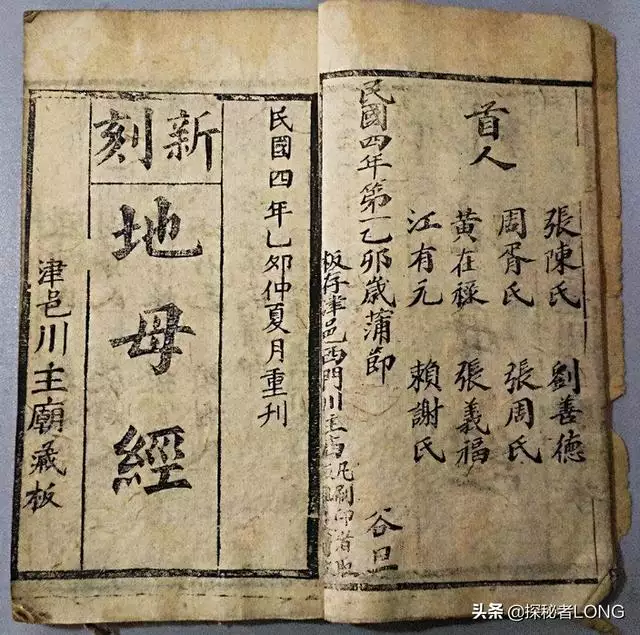 首人
張陳氏 劉善德
周胥氏 張周氏
黄在祿 張義福
江有元 賴謝氏
民國四年第一乙夘歲蒲節 谷旦
板存津邑西門川主庙凡刷印者
民國四年乙夘仲夏月重刊
新刻
地母經
津邑川主廟藏板
头条 @探秘者LONG